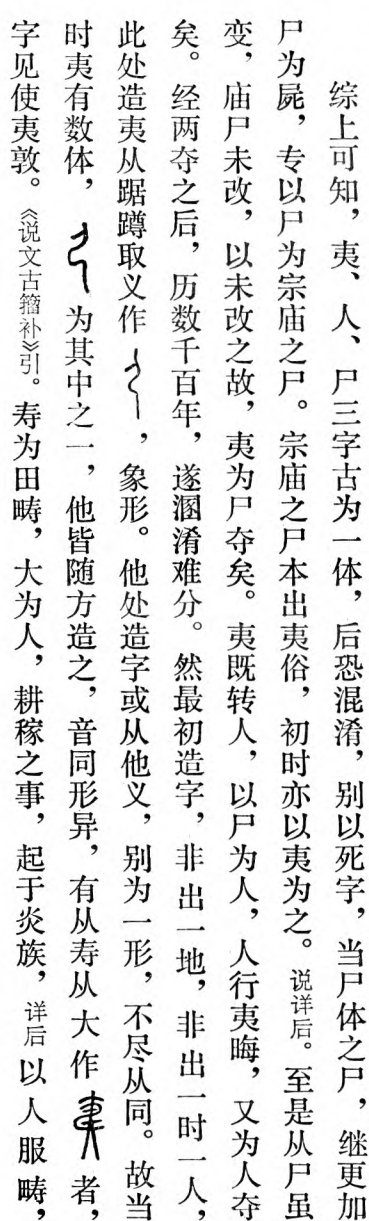 综上可知，夷、人、尸三字古为一体，后恐混淆，别以死字，当尸体之尸，继更加
尸为屍，专以尸为宗庙之尸。宗庙之尸本出夷俗，初时亦以夷为之。说详后。至是从尸虽
变，庙尸未改，以未改之故，夷为尸夺矣。夷既转人，以尸为人，人行夷晦，又为人夺
矣。经两夺之后，历数千百年，遂溷淆难分。然最初造字，非出一地，非出一时一人，
此处造夷从踞蹲取义作，象形。他处造字或从他义，别为一形，不尽从同。故当
时夷有数体，为其中之一，他皆随方造之，音同形异，有从寿从大作者，
字见使夷敦。《说文古籀补》引。寿为田畴，大为人，耕稼之事，起于炎族，详后以人服畴，